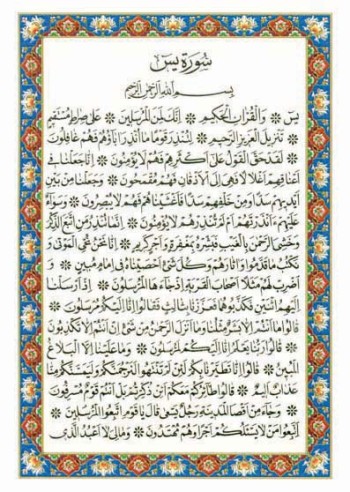 سورة يس
بسم الله الرحمن الرحيم
يس ❊ والقرآن الحكيم ❊ إنك لمن المرسلين ❊ على صراط مستقيم
❊ تنزيل العزيز الرحيم ❊ لتنذر قوما ما أنذر آباؤهم فهم غافلون
❊ لقد حق القول على أكثرهم فهم لا يؤمنون ❊ إنا جعلنا في
أعناقهم أغلالا فهي إلى الأذقان فهم مقمحون ❊ وجعلنا من بين
أيديهم سدا ومن خلفهم سدا فأغشيناهم فهم لا يبصرون ❊ وسواء
عليهم ءأنذرتهم أم لم تنذرهم لا يؤمنون ❊ إنما تنذر من اتبع الذكر
وخشي الرحمن بالغيب فبشره بمغفرة وأجر كريم ❊ إنا نحن نحي الموتى و
نكتب ما قدموا وآثارهم وكل شيء أحصيناه في إمام مبين ❊ و
اضرب لهم مثلا أصحاب القرية إذ جاءها المرسلون ❊ إذ أرسلنا
إليهم اثنين فكذبوهما فعززنا بثالث فقالوا إنا إليكم مرسلون ❊
قالوا ما أنتم إلا بشر مثلنا وما أنزل الرحمن من شيء إن أنتم إلا تكذبون
❊ قالوا ربنا يعلم إنا إليكم لمرسلون ❊ وما علينا إلا البلاغ
المبين ❊ قالوا إنا تطيرنا بكم لئن لم تنتهوا لنرجمنكم وليمسنكم منا
عذاب أليم ❊ قالوا طائركم معكم أئن ذكرتم بل أنتم قوم مسرفون
❊ وجاء من أقصا المدينة رجل يسعى قال يا قوم اتبعوا المرسلين ❊
اتبعوا من لا يسئلكم أجرا وهم مهتدون ❊ ومالي لا أعبد الذي